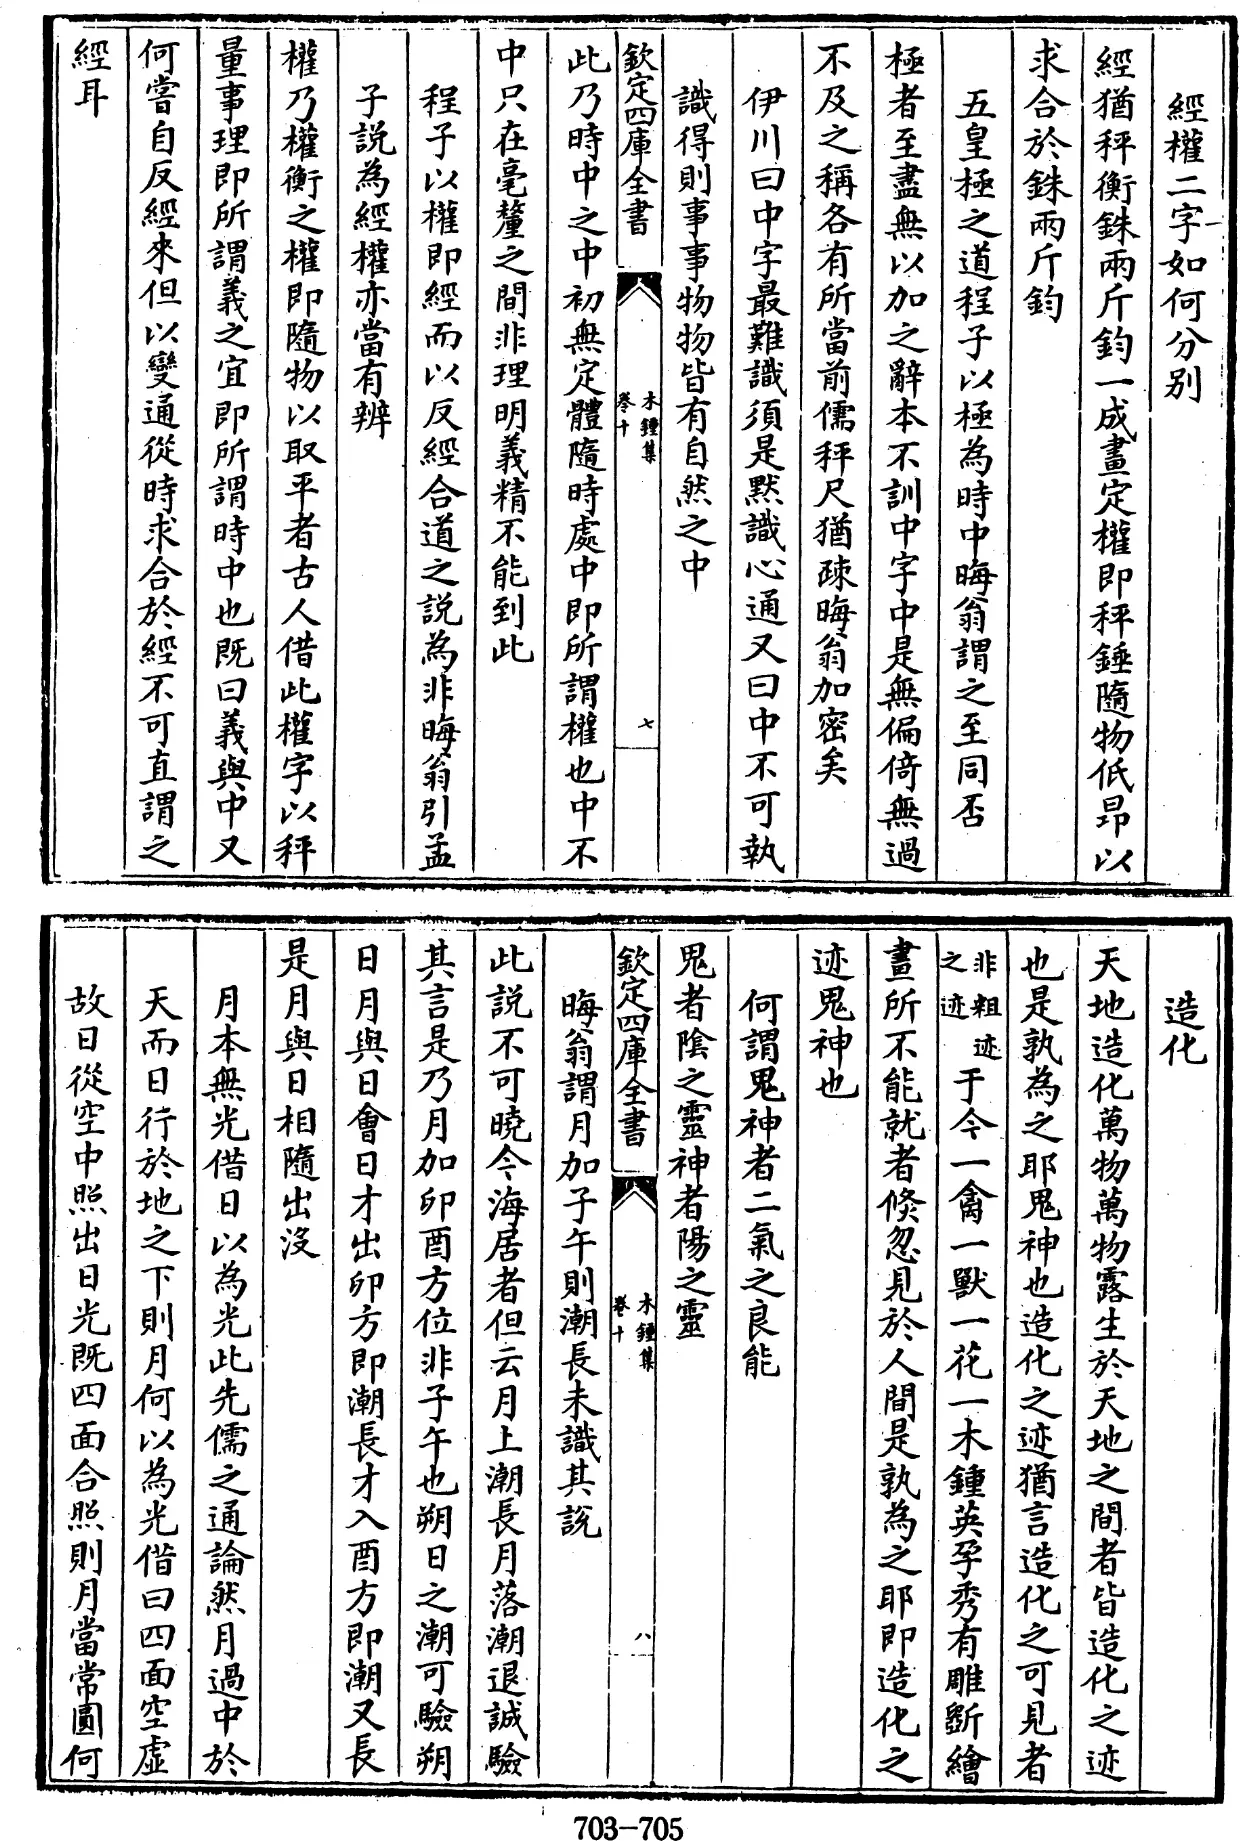 經權二字如何分别
經猶秤衡銖兩斤鈞一成畫定權即秤錘隨物低昻以
求合於銖兩斤鈞
五皇極之道程子以極為時中晦翁謂之至同否
極者至盡無以加之辭本不訓中字中是無偏倚無過
不及之稱各有所當前儒秤尺猶疎晦翁加密矣
伊川曰中字最難識須是黙識心通又曰中不可執
識得則事事物物皆有自然之中
欽定四庫全書
木鍾集
卷十
七
此乃時中之中初無定體隨時處中即所謂權也中不
中只在毫釐之間非理明義精不能到此
程子以權即經而以反經合道之説為非晦翁引孟
子説為經權亦當有辨
權乃權衡之權即隨物以取平者古人借此權字以秤
量事理即所謂義之宜即所謂時中也既曰義與中又
何嘗自反經來但以變通從時求合於經不可直謂之
經耳
造化
天地造化萬物萬物露生於天地之間者皆造化之迹
也是孰為之耶鬼神也造化之迹猶言造化之可見者
非粗迹
之迹
于今一禽一獸一花一木鍾英孕秀有雕斵繪
畫所不能就者倐忽見於人間是孰為之耶即造化之
迹鬼神也
何謂鬼神者二氣之良能
鬼者陰之靈神者陽之靈
欽定四庫全書
木鍾集
卷十
八
晦翁謂月加子午則潮長未識其説
此説不可曉今海居者但云月上潮長月落潮退誠驗
其言是乃月加卯酉方位非子午也朔日之潮可驗朔
日月與日會日才出卯方即潮長才入酉方即潮又長
是月與日相隨出沒
月本無光借日以為光此先儒之通論然月過中於
天而日行於地之下則月何以為光借曰四面空虛
故日從空中照出日光既四面合照則月當常圓何
703—705